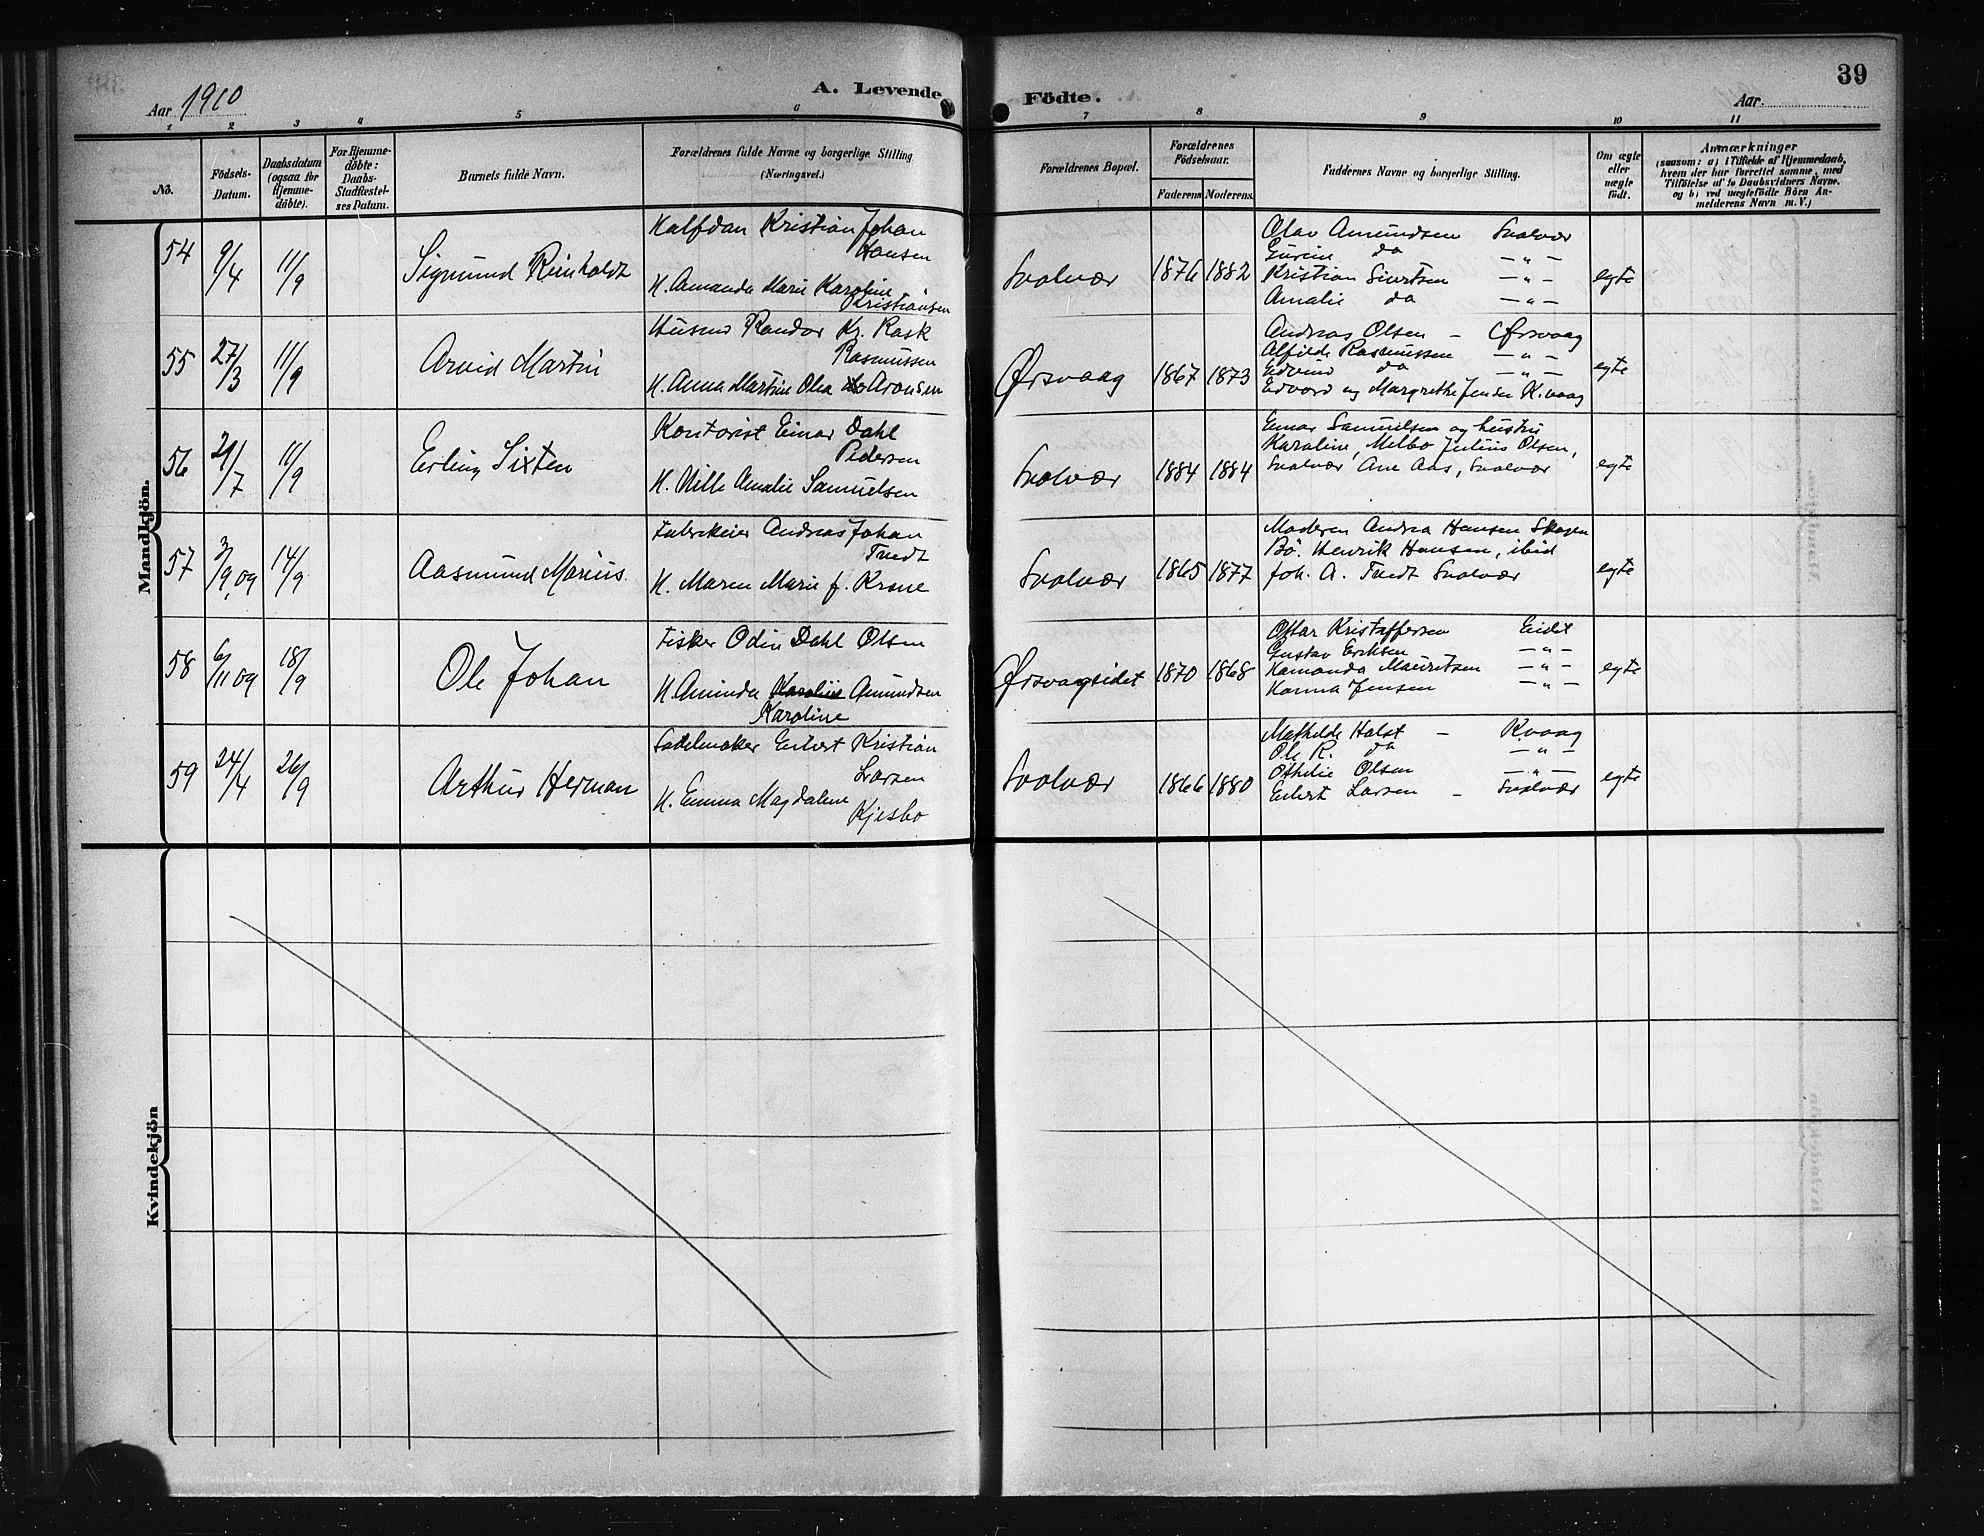 39
Aar 1910
A. Levende
Födte.
Aar
1 2 3 4 5 6 7 8 9 10 11
No.
Födsels-
Datum.
Daabsdatum
(ogsaa for
Hjemme-
döbte).
For Hjemme-
döbte:
Daabs-
Stadfæstel-
ses Datum.
Barnets fulde Navn.
Forældrenes fulde Navne og borgerlige Stilling
(Næringsvei.)
Forældrenes Bopæl.
Forældrenes
Födselsaar.
Faderens Moderens.
Faddernes Navne og borgerlige Stilling.
Om ægte
eller
uægte
födt.
Anmærkninger
(saasom: a) i Tilfælde af Hjemmedaab,
hvem der har forrettet samme, med
Tilföielse af to Daabsvidners Navne.
og b) ved uægtefödte Börn An-
melderens Navn m. V.)
Mandkjön.
54
9/4
11/9
Sigmund Reinholdt
Halfdan Kristian Johan
Hansen
H. Amanda Marie Karoline
Kristiansen
Svolvær
1876 1882
Olav Amundsen Svolvær
Gurine do — " —
Kristian Sivertsen — " —
Amalie do — " —
egte
55
27/3
11/9
Arvid Martin
Husmd Randor Kr. Rask
Rasmussen
H. Anna Martine Olea Aronsen
Ørsvaag
1867 1873
Andreas Olsen – Ørsvaag
Alfilde Rasmussen — " —
Edvind do — " —
Edvard og Margrethe Jensen K.vaag
egte
56
21/7
11/9
Erling Sixten
Kontorist Einar Dahl
Pedersen
H. Mille Amalie Samuelsen
Svolvær
1884 1884
Einar Samuelsen og hustru
Karoline, Melbo Julius Olsen,
Svolvær Ane Aas, Svolvær
egte
57
3/9, 09
14/9
Aasmund Marius.
Fabrikeier Andreas Johan
Tvedt
H. Maren Marie f. Krane
Svolvær
1865 1877
Moderen Andrea Hansen Skagen
Bø. Henrik Hansen, ibid
Joh. A. Tvedt Svolvær
egte
58
6/11 09
18/9
Ole Johan
Fisker Odin Dahl Olsen
H. Aminda Karoline Amundsen
Karoline
Ørsvaageidet
1870 1868
Ottar Kristoffersen Eidet
Gustav Eriksen — " —
Hamanda Mauritsen — " —
Hanna Jensen — " —
egte
59
24/4
26/9
Arthur Herman
Sadelmaker Eilert Kristian
Larsen
H. Emma Magdalene
Kjesbo
Svolvær
1866 1880
Mathilde Holst – K.vaag
Ole R. do — " —
Othilie Olsen — " —
Eilert Larsen – Svolvær
egte
Kvindekjön